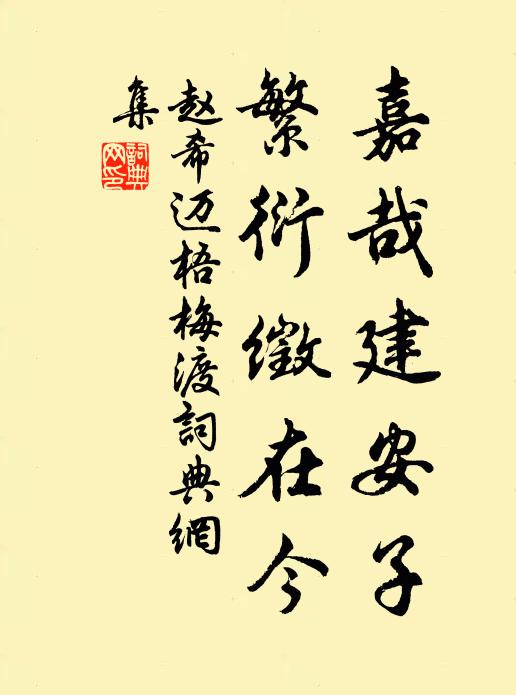 嘉哉建安子
繁衍徵在今
赵希迈梧梅渡詞典網
集
詞典網